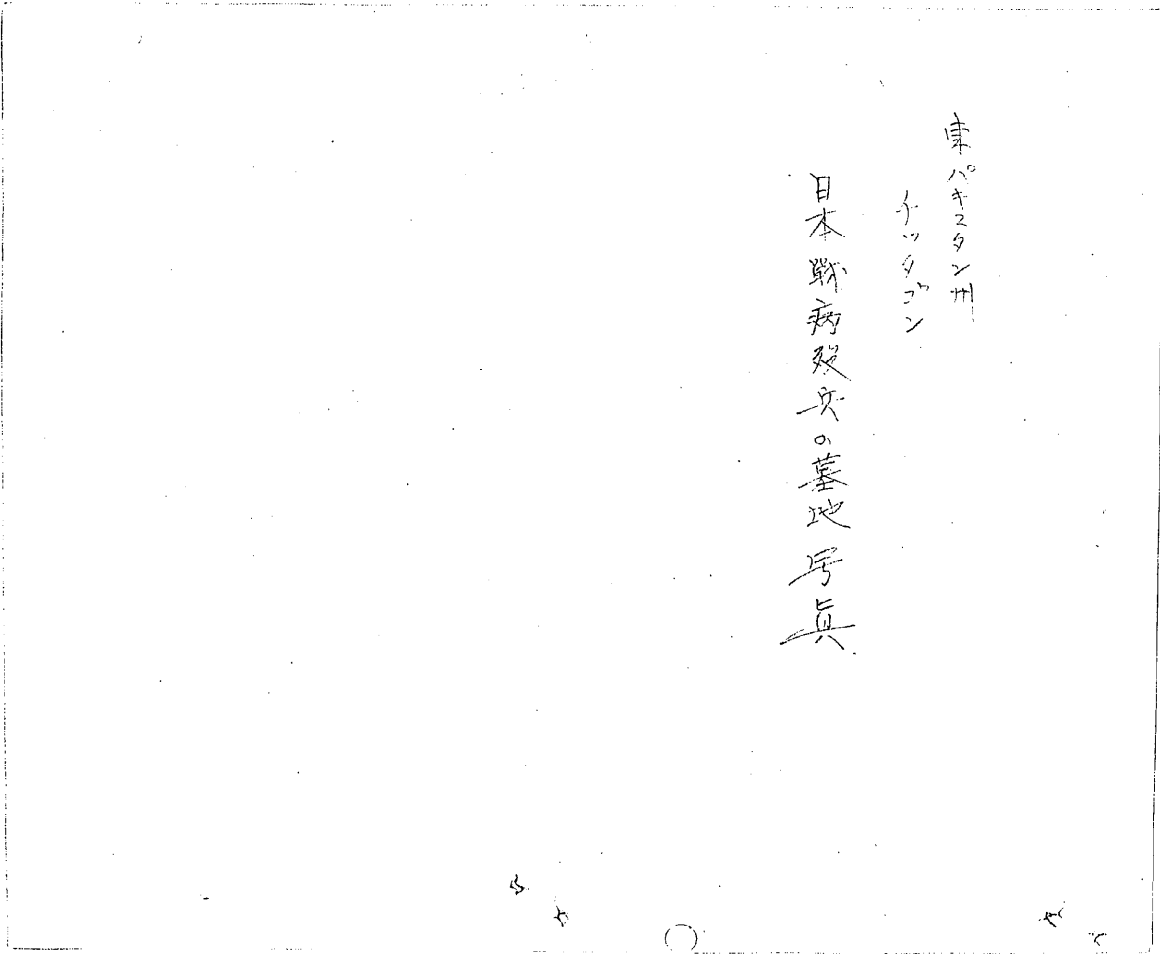 東パキスタン州
チッタゴン
日本戦病歿兵の墓地写真